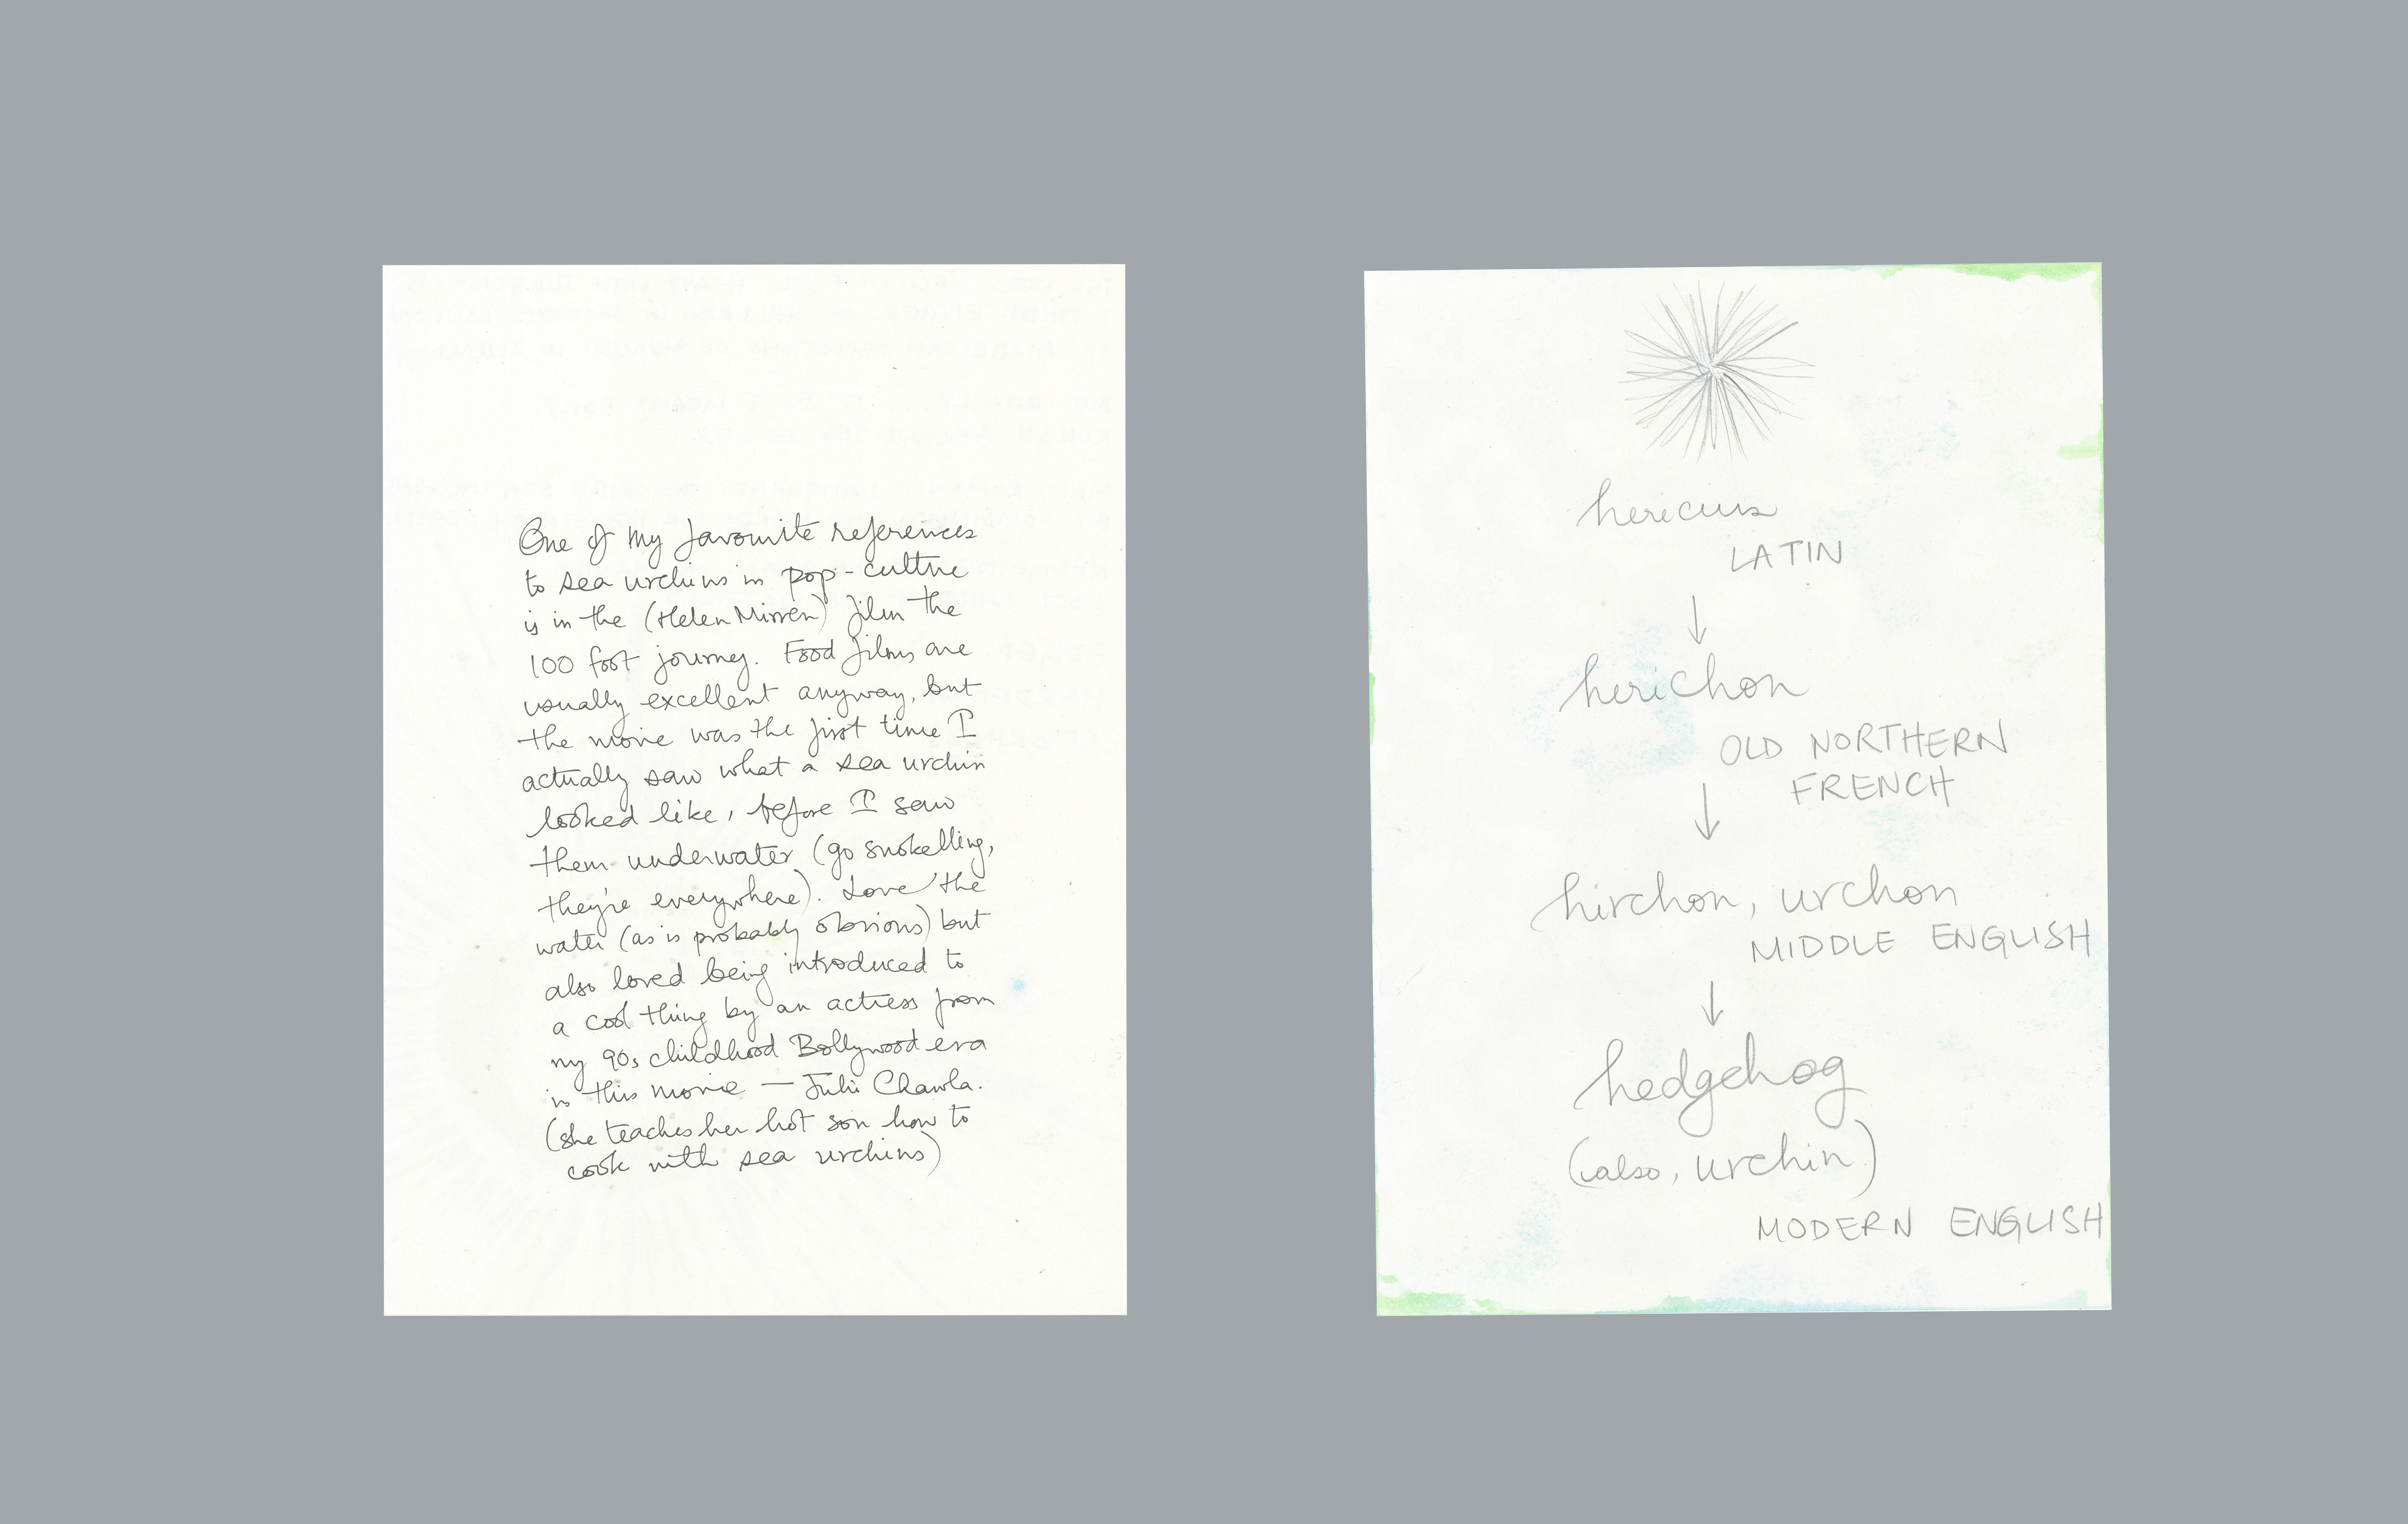 One of my favourite references
to sea urchins in pop-culture
is in the (Helen Mirren) film the
100 foot journey. Food films are
usually excellent anyway, but
the movie was the first time I
actually saw what a sea urchin
looked like, before I saw
them underwater (go snokelling,
they're everywhere). Love the
water (as is probably obvious) but
also loved being introduced to
a cool thing by an actress from
my 90s childhood Bollywood era
in this movie — Juhi Chawla.
(she teaches her hot son how to
cook with sea urchins)
hericus
LATIN
↓
herichon
OLD NORTHERN
FRENCH
↓
hirchon, urchon
MIDDLE ENGLISH
↓
hedgehog
(also, urchin)
MODERN ENGLISH